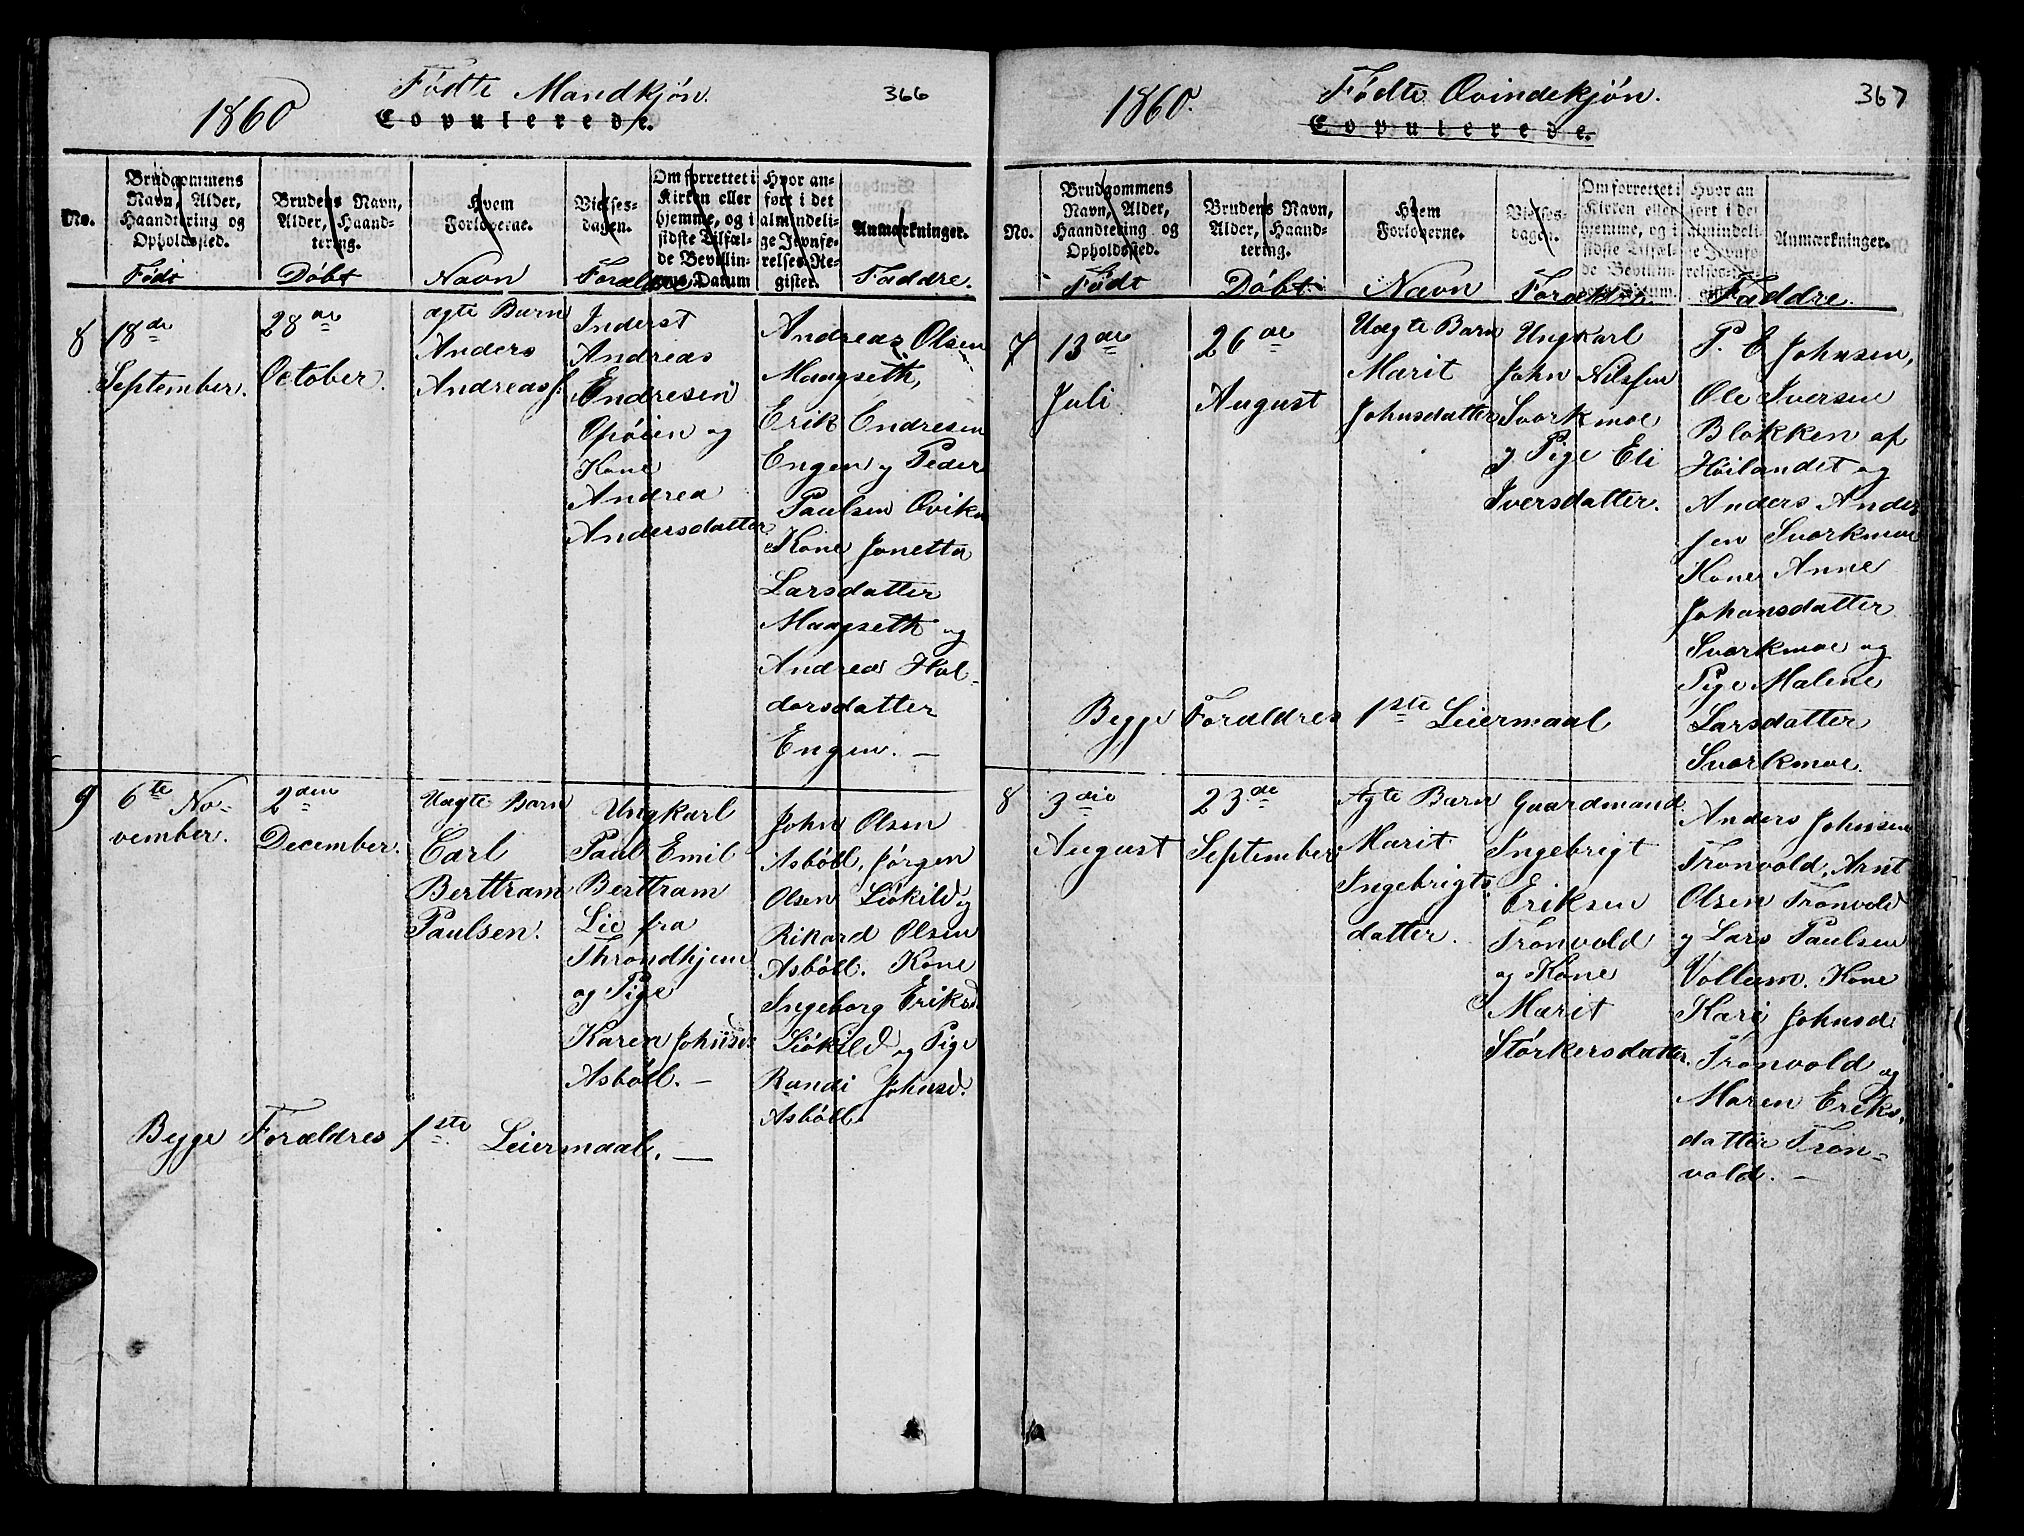 Fødte Mandkjøn. 366
1860
Copulerede.
No.
Brudgommens
Navn, Alder,
Haandtering og
Opholdssted.
Brudens Navn,
Alder, Haand-
tering.
Hvem
Forloverne.
Vielses-
dagen.
Om forrettet i
Kirken eller
hjemme, og i
sidste Tilfæl-
de Bevillin-
gens Datum
Hvor an-
ført i det
almindeli-
ge Jevnfø-
relses-Re-
gister.
Anmærkninger.
Født
Døbt
Navn
Forældre
Faddre.
8
18de
September.
28de
October.
ægte Barn
Anders
Andreass.
Inderst
Andreas
Endresen
Opøien og
Kone
Andrea
Andersdatter
Andreas Olsen
Maagseth,
Erik Endresen
Engen og Peder
Paulsen Qviken
Kone Jonetta
Larsdatter
Maagseth og
Andrea Hal-
dorsdatter
Engen. —
9
6te No-
vember.
2den
December.
Uægte Barn
Carl
Berttram
Paulsen.
Ungkarl
Paul Emil
Berttram
Lie fra
Throndhjem
og Pige
Karen Johnsd.
Asbøll. —
John Olsen
Asbøll, Jørgen
Olsen Liøkild og
Rikard Olsen
Asbøll. Kone
Ingeborg Eriksd
Liøkild og Pige
Randi Johnsd.
Asbøll.
Begge Forældres 1ste Leiermaal. —
Fødte Qvindekjøn. 367
1860.
Copulerede.
No.
Brudgommens
Navn, Alder,
Haandtering og
Opholdssted.
Brudens Navn,
Alder, Haand-
tering.
Hvem
Forloverne.
Vielses-
dagen.
Om forrettet i
Kirken eller
hjemme, og i
sidste Tilfæl-
de Bevillin-
Datum.
Hvor an
ført i det
almindeli-
ge Jevnfø-
relses-
Anmærkninger.
Født
Døbt
Navn
Forældre
Faddre.
7
13de
Juli
26de
August
Uægte Barn
Marit
Johnsdatter
Ungkarl
John Nilssen
Svorkmoe
og Pige Eli
Iversdatter.
P. E Johnsen,
Ole Iversen
Blokken af
Høilandet og
Anders Ander
sen Svorkmoe
Kone Anne
Johansdatter
Svorkmoe og
Pige Malene
Larsdatter
Svorkmoe.
Begge Forældres 1ste Leiermaal
8
3die
August
23de
September
Ægte Barn
Marit
Ingebrigts
datter.
Gaardmand
Ingebrigt
Eriksen
Tronvold
og Kone
Marit
Størkersdatter.
Anders Johnsen
Tronvold, Arnt
Olsen Tronvold
og Lars Paulsen
Vollum. Kone
Kari Johnsd
Tronvold og
Maren Eriks-
datter Tron-
vold. —